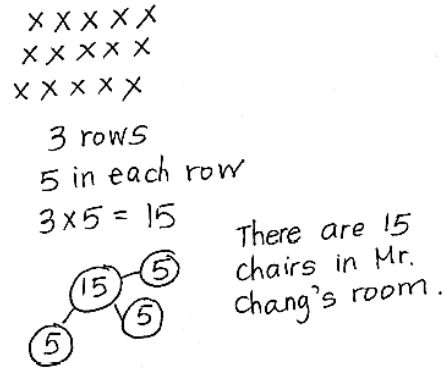 X X X X X
X X X X X
X X X X X
3 rows
5 in each row
3 x 5 = 15
15
5
5
5
There are 15
chairs in Mr.
Chang's room.